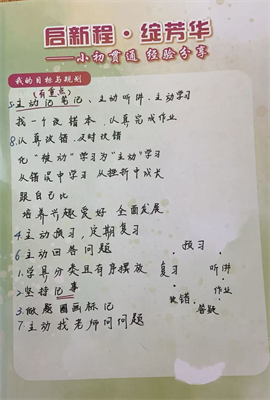 启新程·绽芳华
——小初贯通 经验分享
我的目标与规划
(有重点)
5.主动记笔记、主动听讲、主动学习
找一个改错本、认真完成作业
8.认真改错、及时改错
化“被动”学习为“主动”学习
从错误中学习 从挫折中成长
跟自己比
培养兴趣爱好 全面发展
4.主动预习,定期复习
6.主动回答问题 预习
1.学具分类且有序摆放 复习 听讲
2.坚持记事 作业
改错 答疑
3.做题圈画标记
7.主动找老师问问题